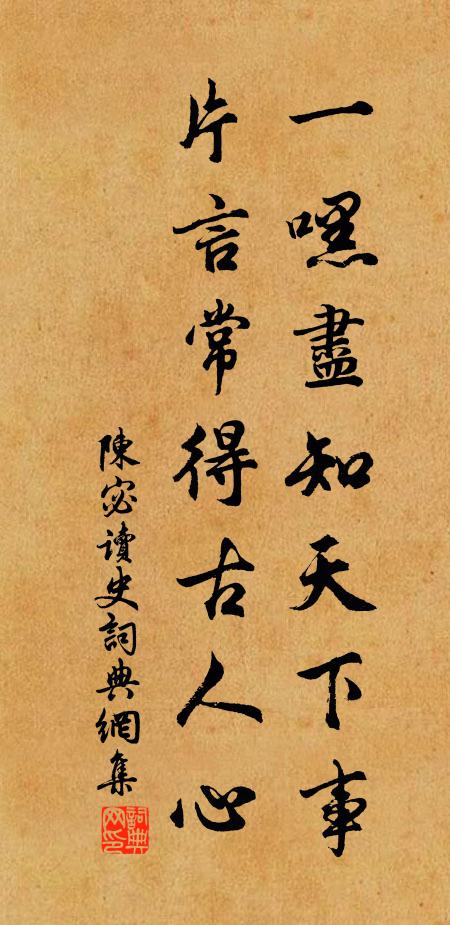 一嘿盡知天下事
片言常得古人心
陳宓讀史詞典網集
詞典网印